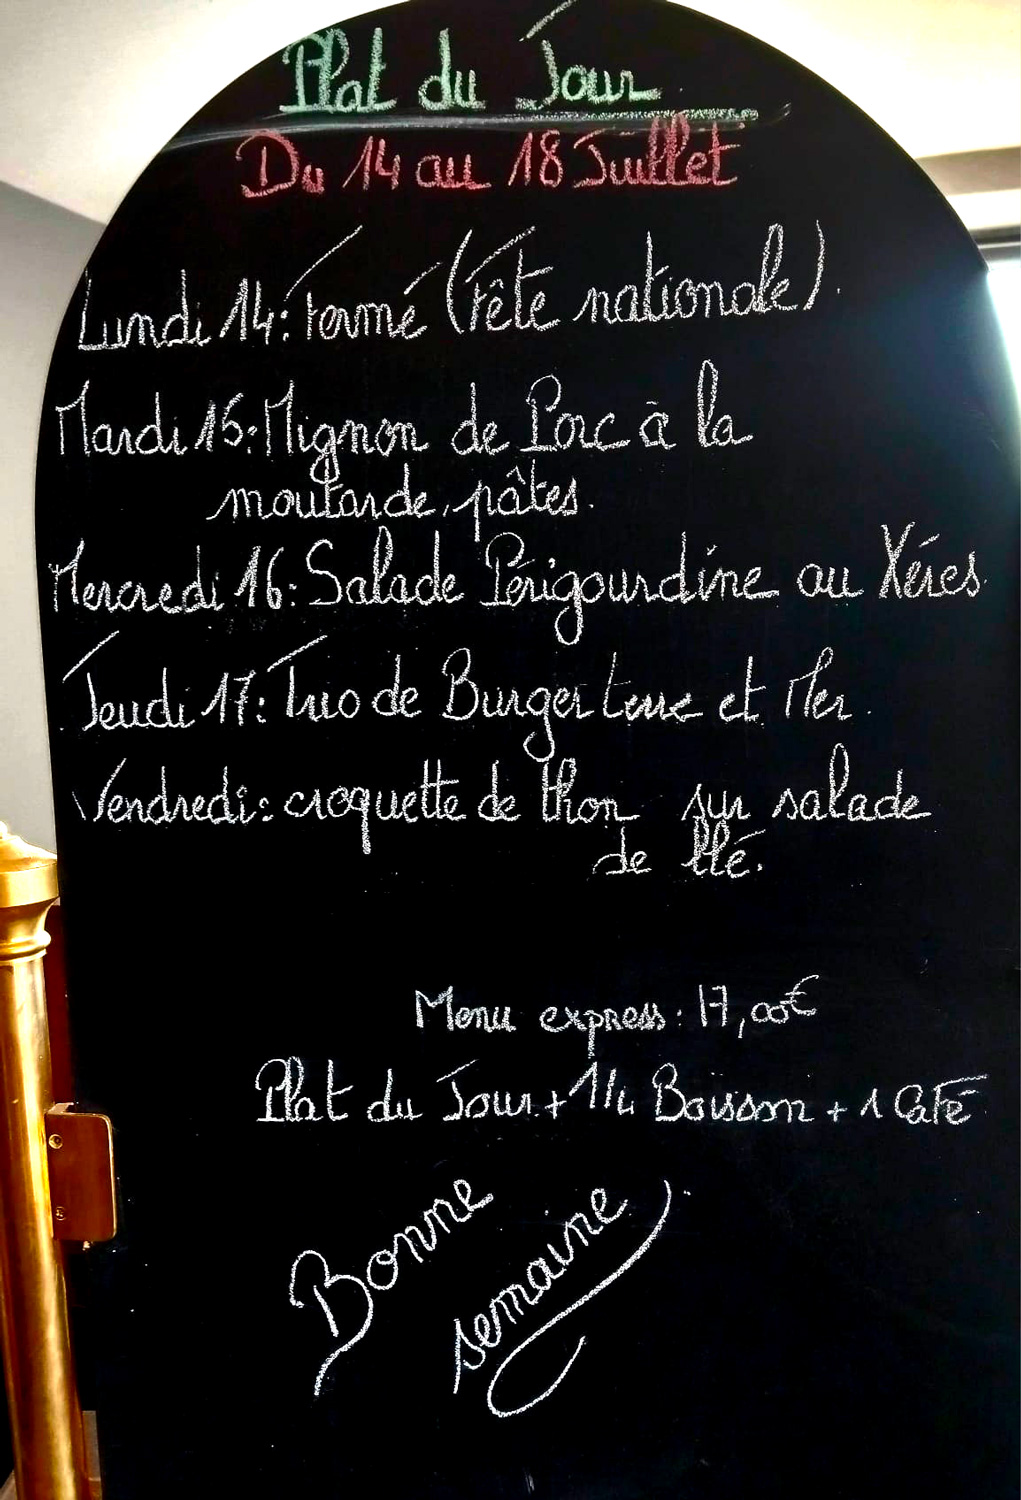 Plat du Jour
Du 14 au 18 Juillet
Lundi 14: Fermé (Fête nationale).
Mardi 15: Mignon de Porc à la
moutarde, pâtes.
Mercredi 16: Salade Périgourdine au Xérès
Jeudi 17: Trio de Burger terre et Mer.
Vendredi: croquette de thon sur salade
de blé.
Menu express: 17,00€
Plat du Jour + 1/4 Boisson + 1 Café
Bonne
semaine